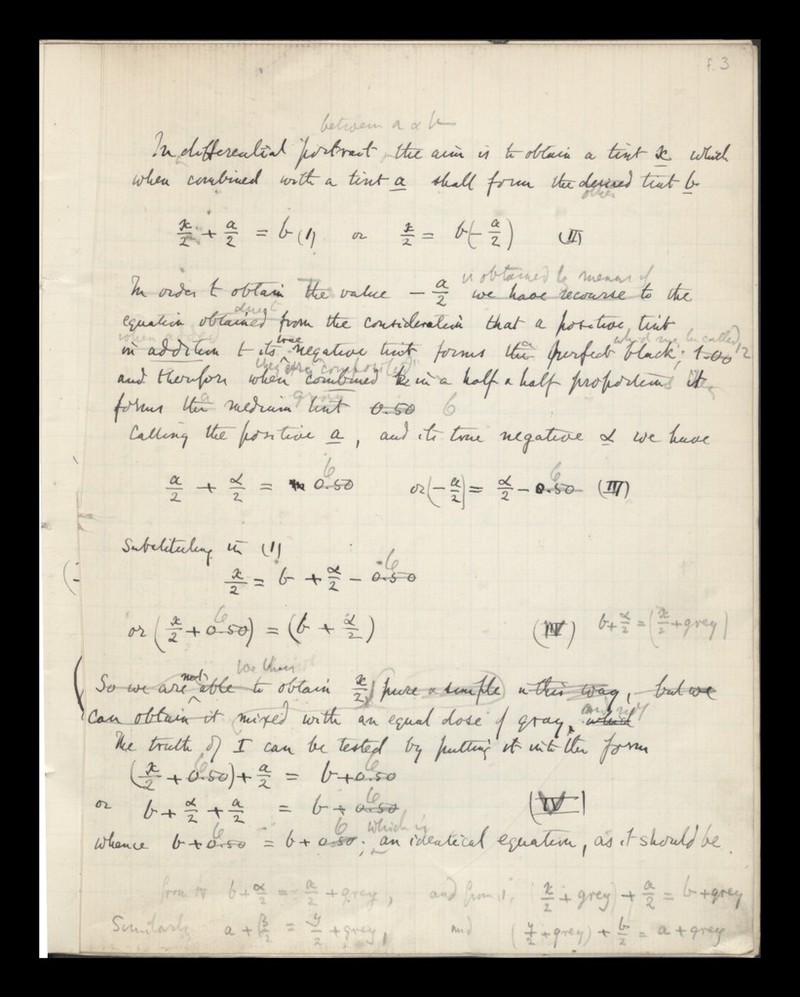 f. 3
between a & b
In differential portrait, the aim is to obtain a tint x which
when combined with a tint a shall form the desired tint b
other
x/2 + a/2 = b (I) or x/2 = b(- a/2) (II)
is obtained by means of
In order to obtain the value - a/2 we have recourse to the
equation obtained from the consideration that a positive tint
which may be called
in addition to its true negative tint forms the perfect black; 1.00
and therefore when combined in a half & half proportions it
forms the medium tint 0.50 G
Calling the positive a, and its true negative α we have
a/2 + α/2 = 0.50 G or (- a/2) = α/2 - 0.50 G (III)
Substituting in (I)
x/2 = b + α/2 - 0.50 G
or (x/2 + 0.50 G) = (b + α/2) (IV) b + α/2 = (x/2 + grey)
So we are not able to obtain x/2 (pure & simple) in this way, but we
can obtain it mixed with an equal dose of gray, which
The truth of I can be tested by putting it into the form
(x/2 + 0.50 G) + a/2 = b + 0.50 G
or b + α/2 + a/2 = b + 0.50 G (V)
which is
whence b + 0.50 G = b + 0.50 G; an identical equation, as it should be.
from IV b + α/2 = x/2 + grey, and from 1, (x/2 + grey) + a/2 = b + grey
Similarly a + β/2 = y/2 + grey, and (y/2 + grey) + b/2 = a + grey